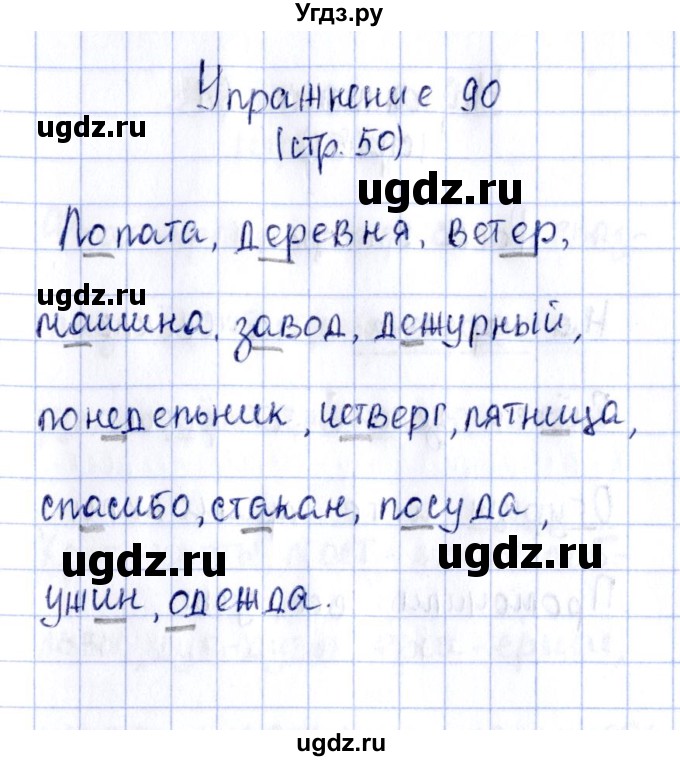 Угдз.ру
Упражнение 90
ugdz.ru
(стр. 50)
ugdz.ru
Лопата, деревня, ветер,
ugdz.ru
машина, завод, дежурный,
понедельник, четверг, пятница,
спасибо, стакан, посуда,
ugdz.ru ugdz.ru
ужин, одежда.
ugdz.ru